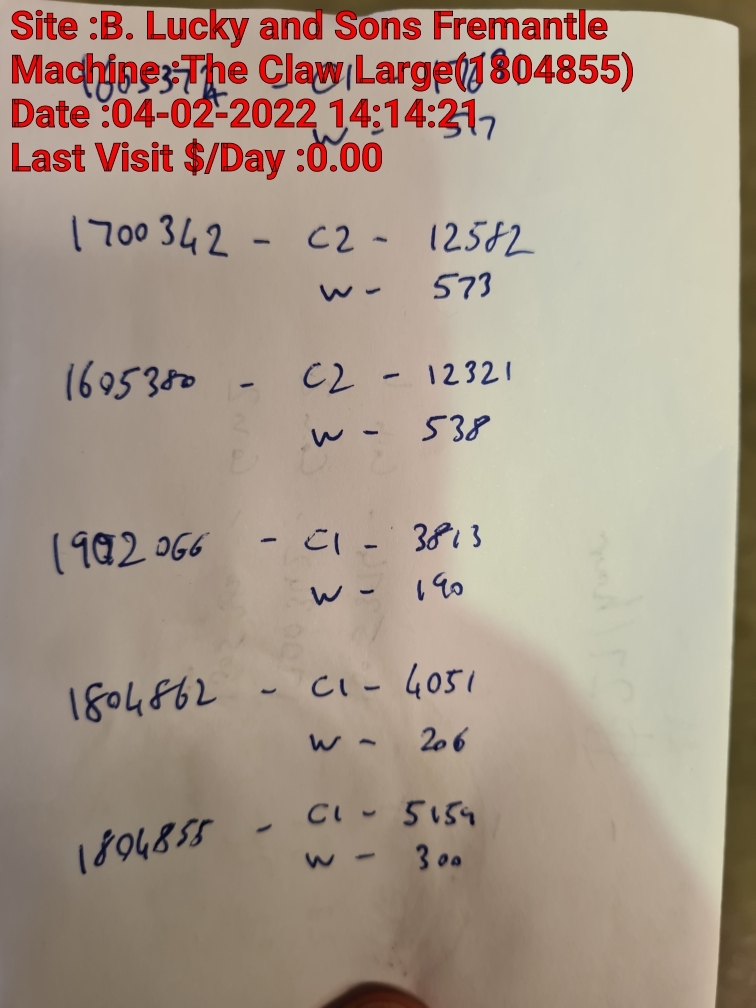 Site :B. Lucky and Sons Fremantle
Machine :The Claw Large(1804855)
Date :04-02-2022 14:14:21
W - 517
Last Visit $/Day :0.00
1700342 - C2 - 12582
W - 573
1605380 - C2 - 12321
W - 538
1902066 - C1 - 3813
W - 190
1804862 - C1 - 4051
W - 206
1804855 - C1 - 5159
W - 300